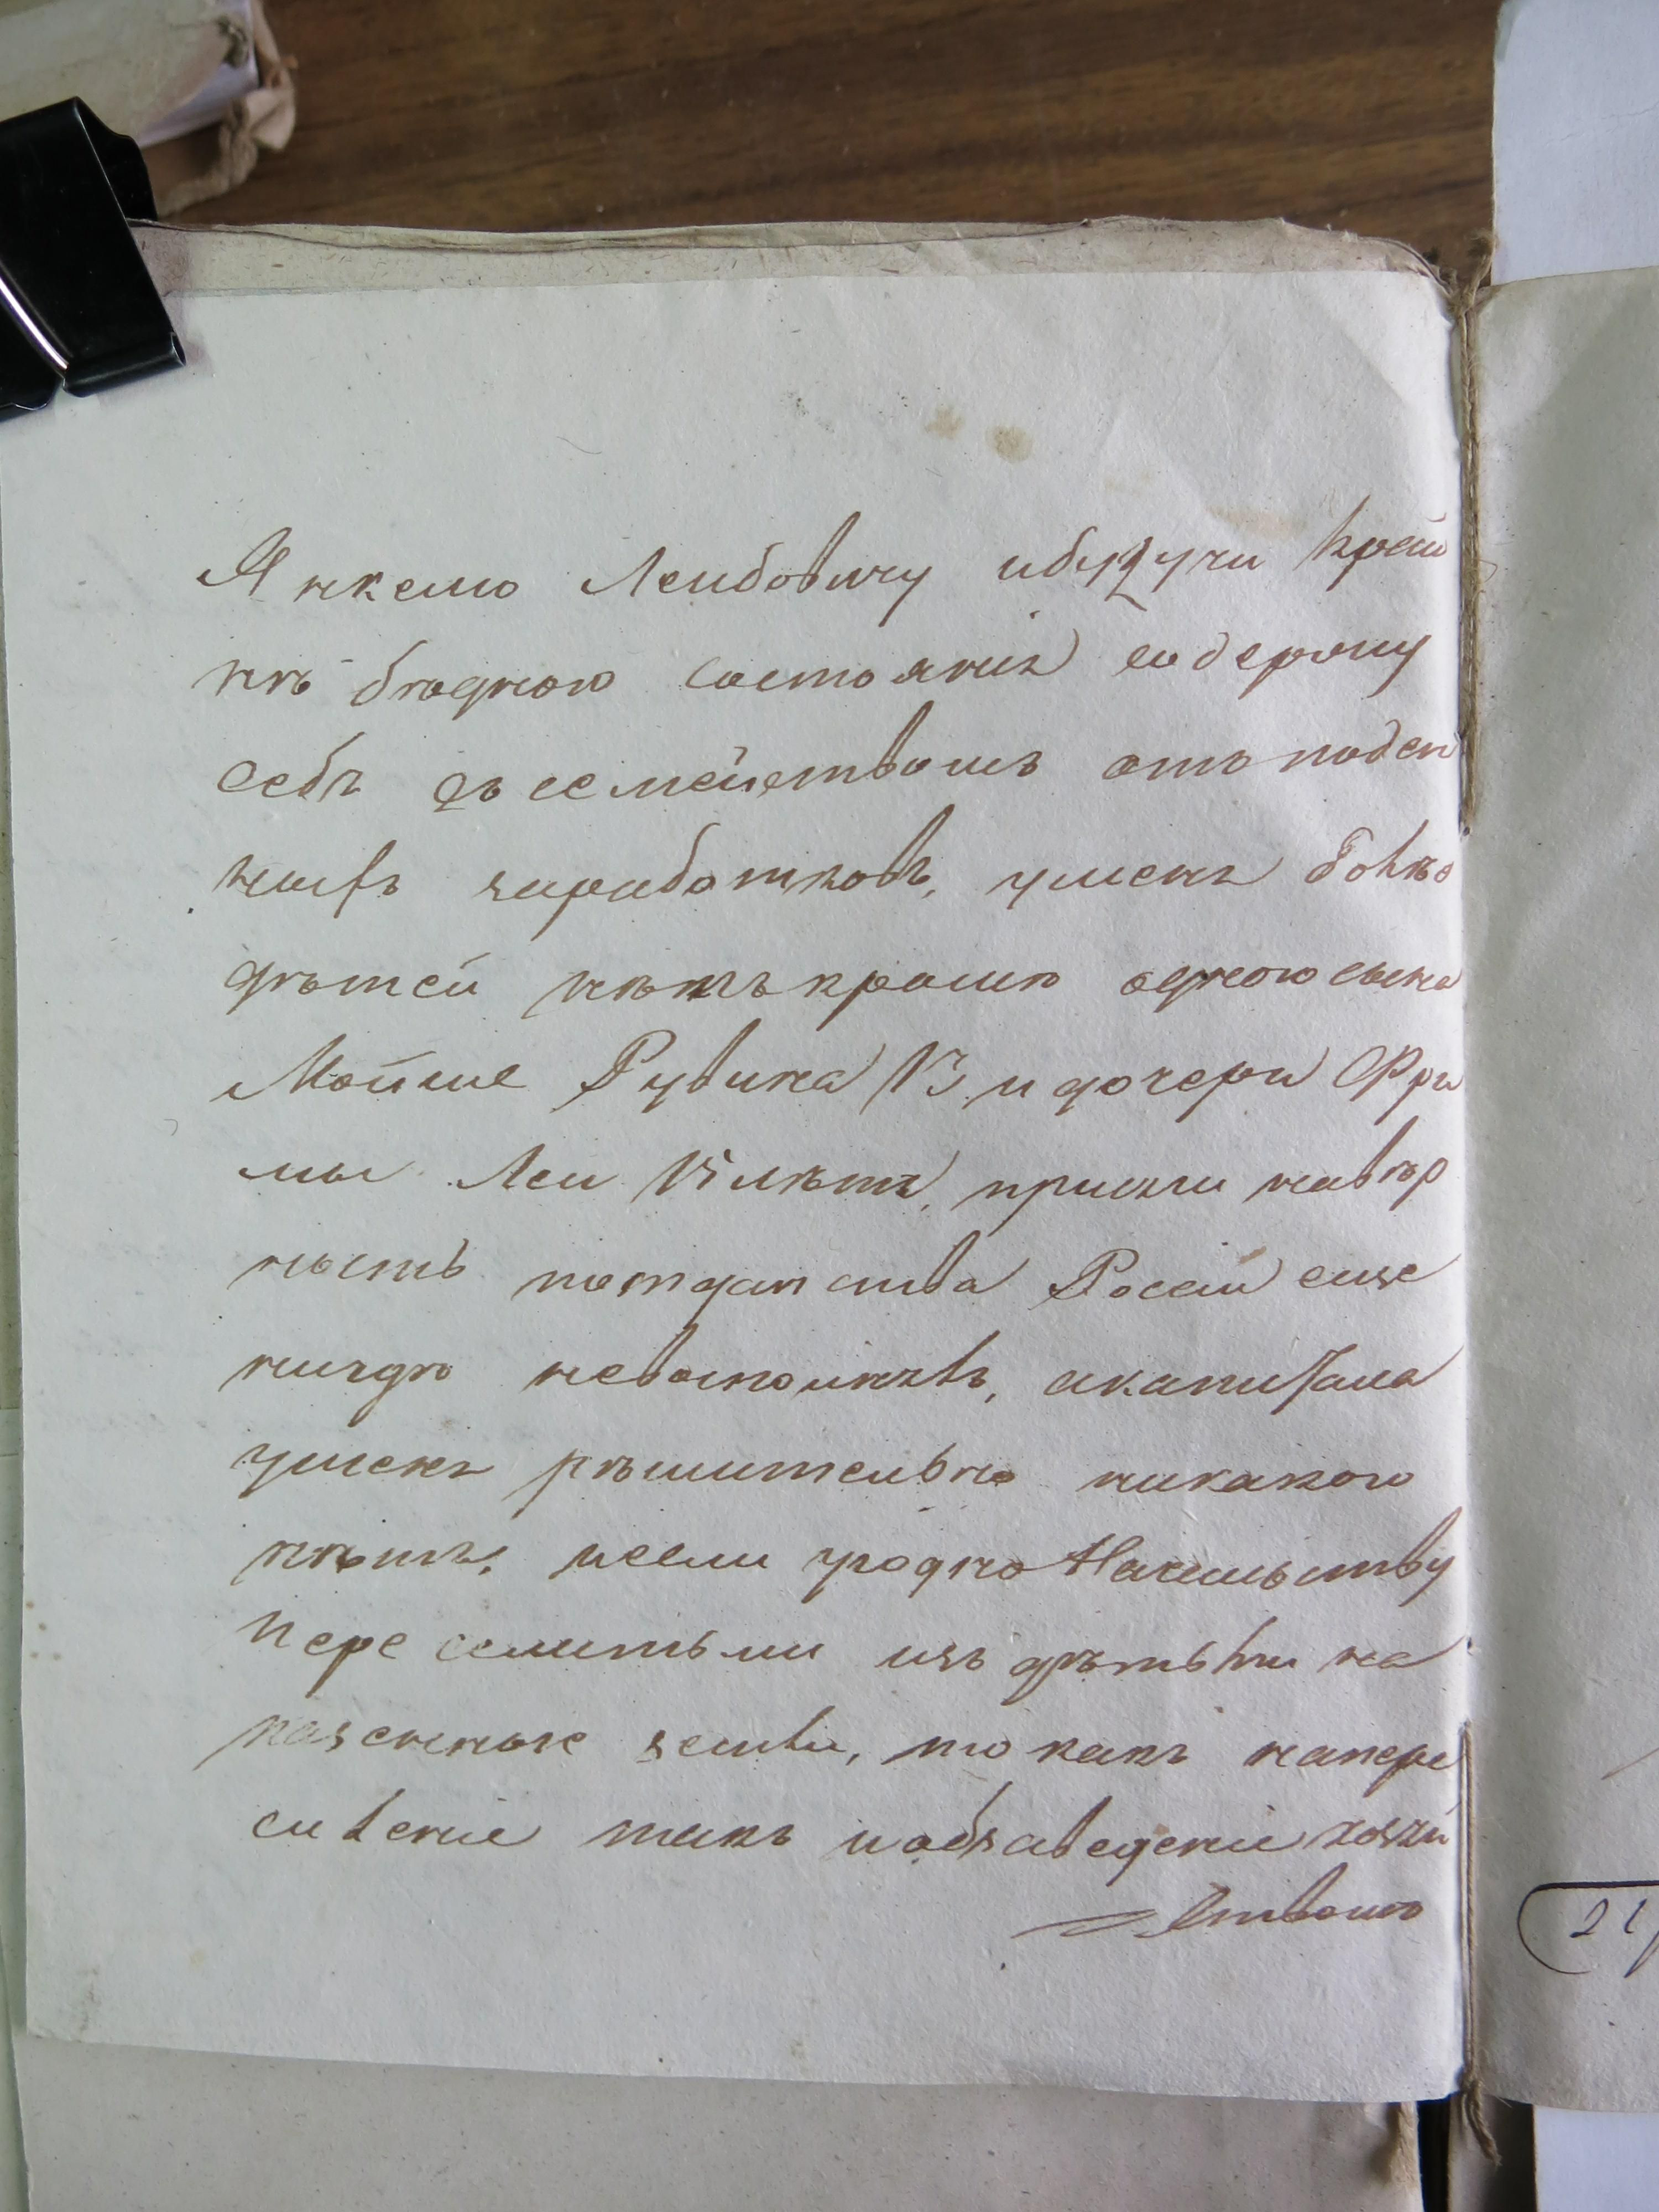 Янкелю Лейбовичу ибудучи край
нѣ бѣдного состоянія содержу
себѣ съ семействомъ отъ поден
ныхъ заработковъ, уменя болѣе
дѣтей нѣтъ кромѣ одного сына
Мойше Рувина 13 и дочери Фри
мы Леи 15 лѣтъ, присяги навѣр
ность потданства Росеіи еще
нигдѣ невыполнялъ, акапитала
уменя рѣшительно никакого
нѣтъ, иесли угодно Начальству
переселитьми изъ дѣтьми на
казенные земли, то какъ напере
селеніе такъ иобзаведеніе хозяй
ствомъ
21